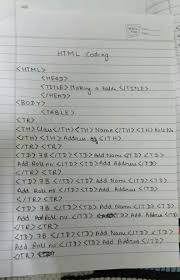 HTML Coding
<HTML>
<HEAD>
<TITLE> Making a table </TITLE>
</HEAD>
<BODY>
<TABLE>
<TR>
<TH> Class </TH> <TH> Name </TH> <TH> Roll No
</TH> <TH> Address </TH>
</TR> <TR>
<TD> 7B </TD> <TD> Add Name </TD> <TD>
Add Roll no </TD> <TD> Add Address </TD>
</TR> <TR>
<TD> 7B </TD> <TD> Add Name </TD> <TD>
Add Roll no </TD> <TD> Add Address </TD>
</TR> <TR>
<TD> 7B </TD> <TD> Add Name </TD> <TD>
Add Roll no </TD> <TD> Add Address </TD>
</TR> <TR>
<TD> 7B </TD> <TD> Add Name </TD> <TD>
Add Roll no </TD> <TD> Add Address </TD>
</TR>